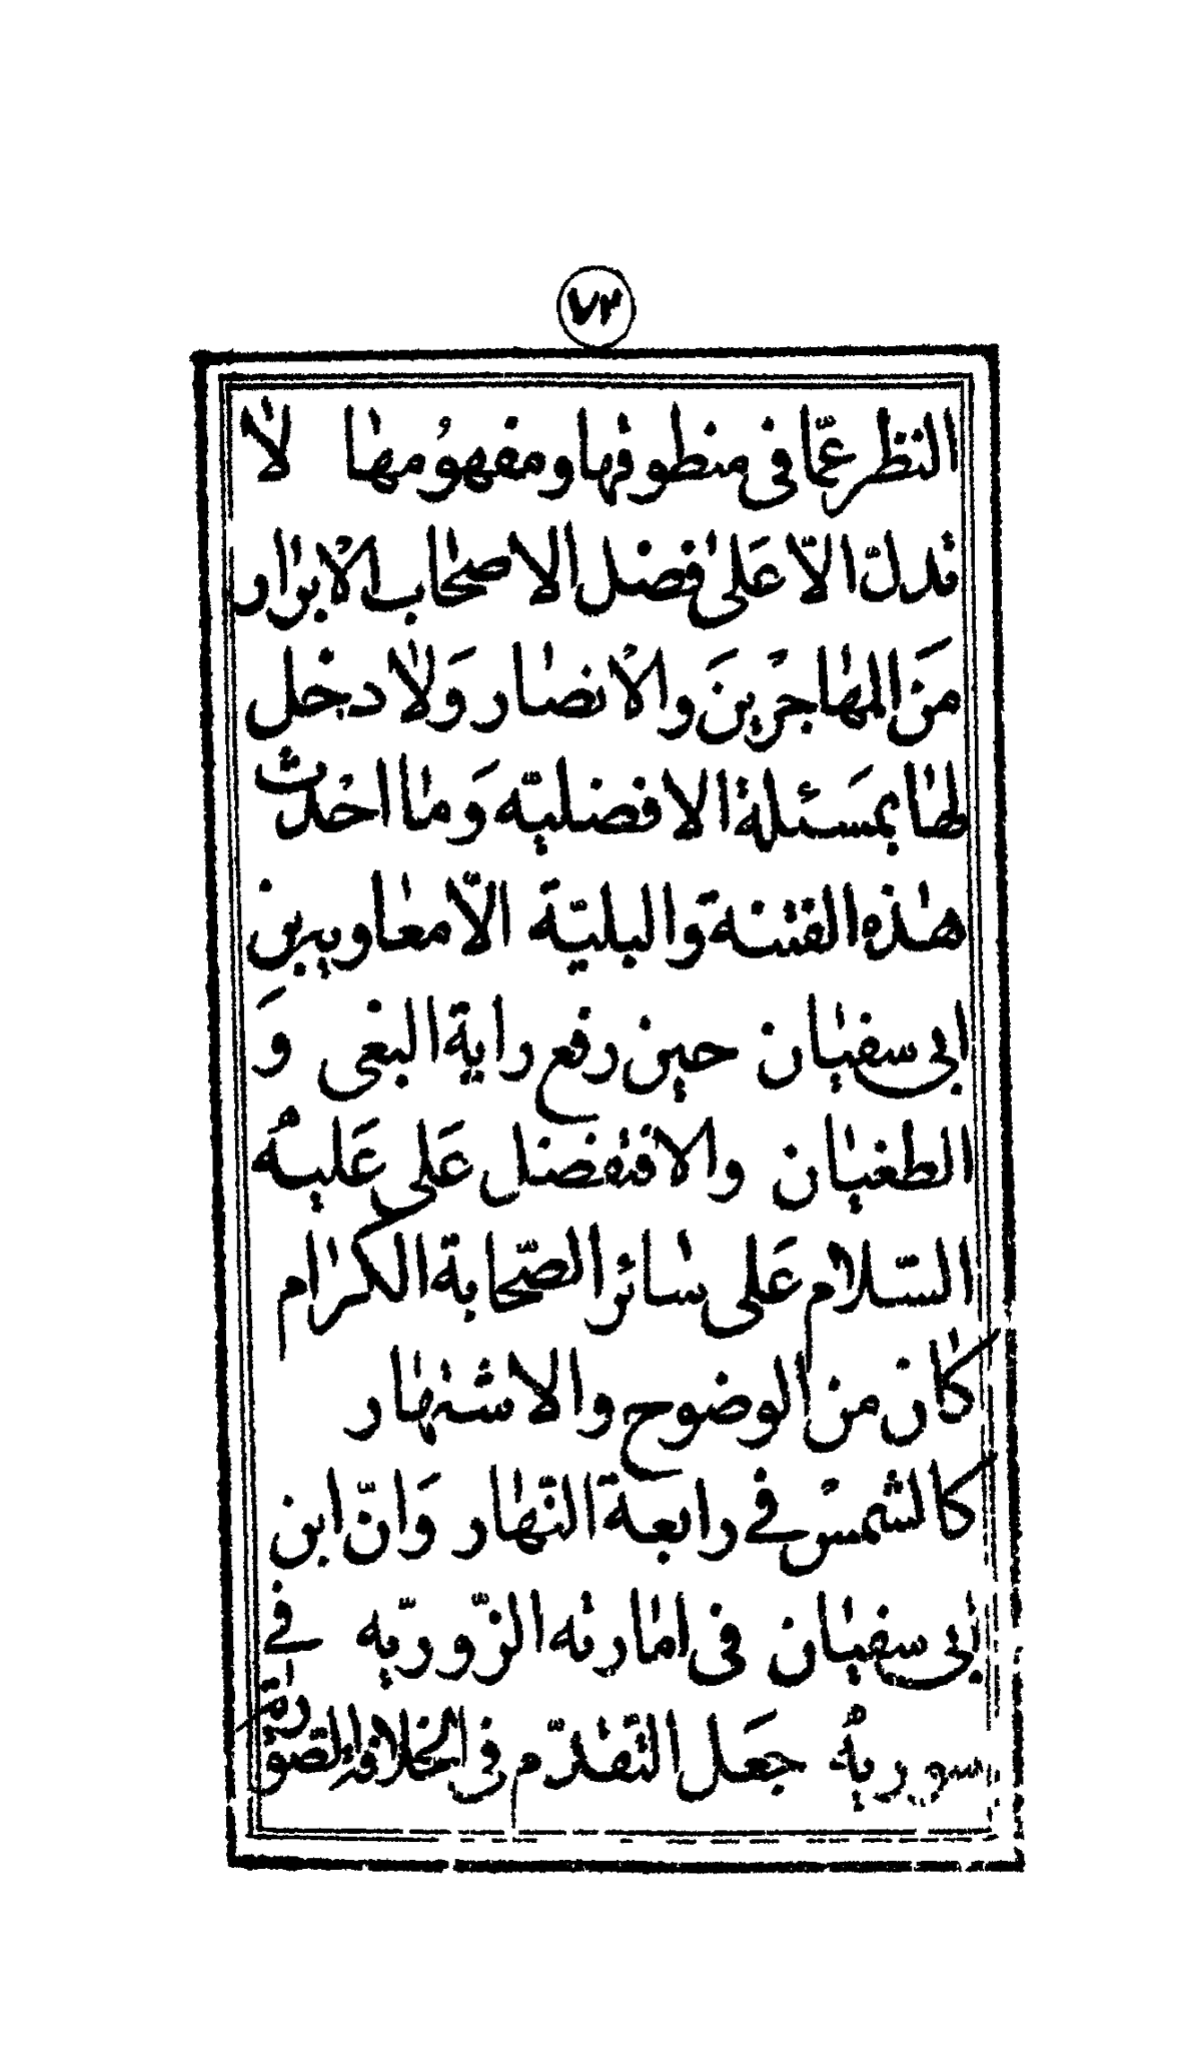 ٧٢
النظر عمّا فى منطوقها ومفهُومهٰا لٰا
تدلّ الّا عَلىٰ فضل الاصحٰاب الْابرٰار و
مَن المهٰاجرْينَ والْانصٰار وَلٰا دخل
لهٰا بمَسئلة الافضليّه وَمٰا احْدث
هٰذه الفتنة والبليّة الّا معٰاوية بن
ابى سفيٰان حين رفع راية البغى وَ
الطغيٰان والٰا فتفضل عَلى عَليهُ
السّلام عَلى سٰائر الصّحابة الكرٰام
كٰان من الوضوح والاشتهٰار
كالشمسْ فے رابعة النّهٰار وَانّ ابن
ابى سفيٰان فى امٰارته الزّوريّه فے
سوريهُ جعَل التّقدّم فى الخلافة الصّوريّة